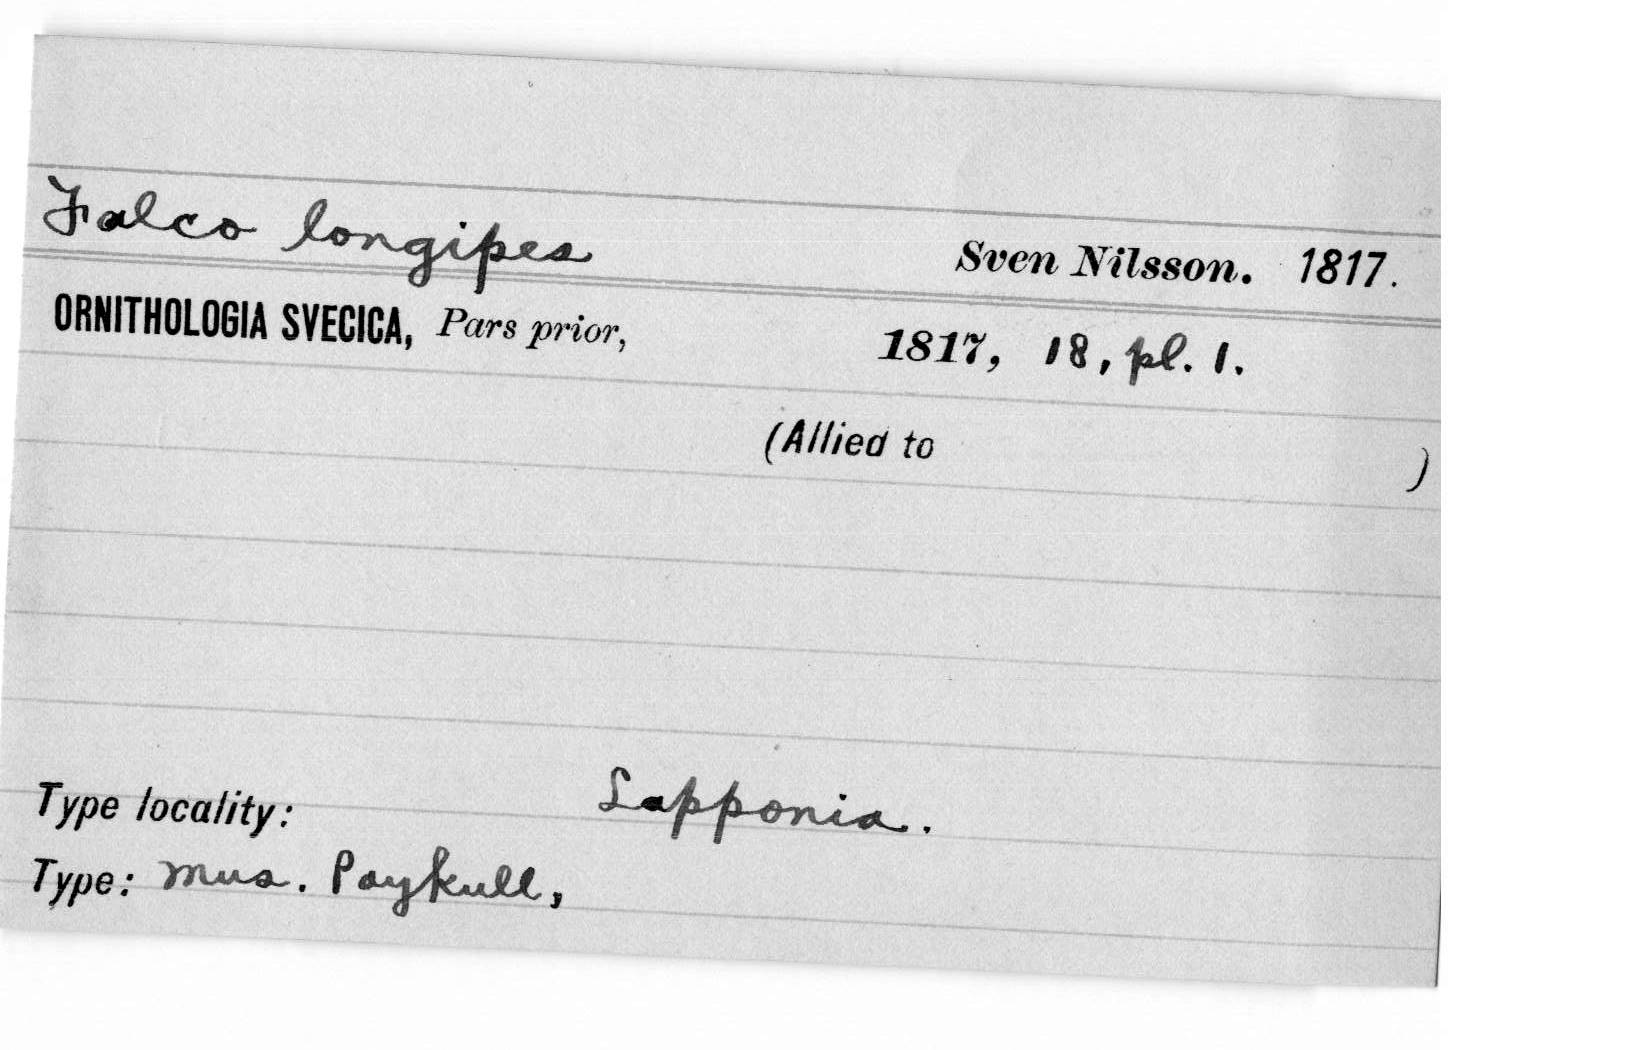 Falco longipes Sven Nilsson. 1817.
ORNITHOLOGIA SVECICA, Pars prior, 1817, 18, pl. 1.
(Allied to )
Type locality: Lapponia.
Type: Mus. Paykull,